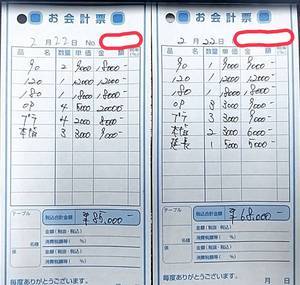 お会計票
2月22日 No.
品名 数量 単価 金額
90 2 9000 18000-
120 1 12000 12000-
180 1 18000 18000-
OP 4 5000 20000
プラ 4 2000 8000-
本指 3 3000 9000-
テーブル 税込合計金額 ¥85,000-
係 名様 金額(税抜・税込)
消費税額等( %)
金額(税抜・税込)
消費税額等( %)
毎度ありがとうございます。
お会計票
2月22日
品名 数量 単価 金額
90 1 9000 9000-
120 1 12000 12000-
180 1 18000 18000-
OP 3 3000 9000-
プラ 3 3000 9000-
本指 2 3000 6000-
延長 1 5000 5000-
テーブル 税込合計金額 ¥68,000-
係 名様 金額(税抜・税込)
消費税額等( %)
金額(税抜・税込)
消費税額等( %)
毎度ありがとうございます。 月 日